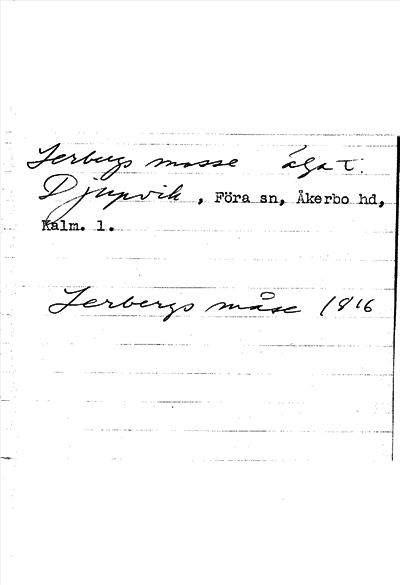 Lerbergs mosse äga t.
Djupvik, Föra sn, Åkerbo hd,
Kalm. l.
Lerbergs måse 1816